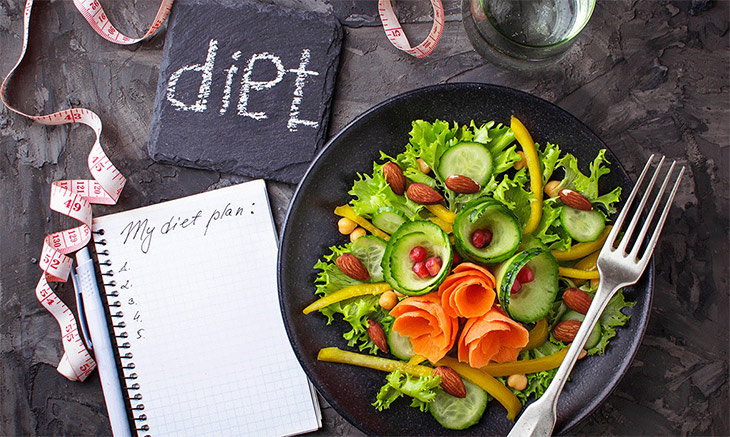 diet
My diet plan:
1.
2.
3.
4.
5.